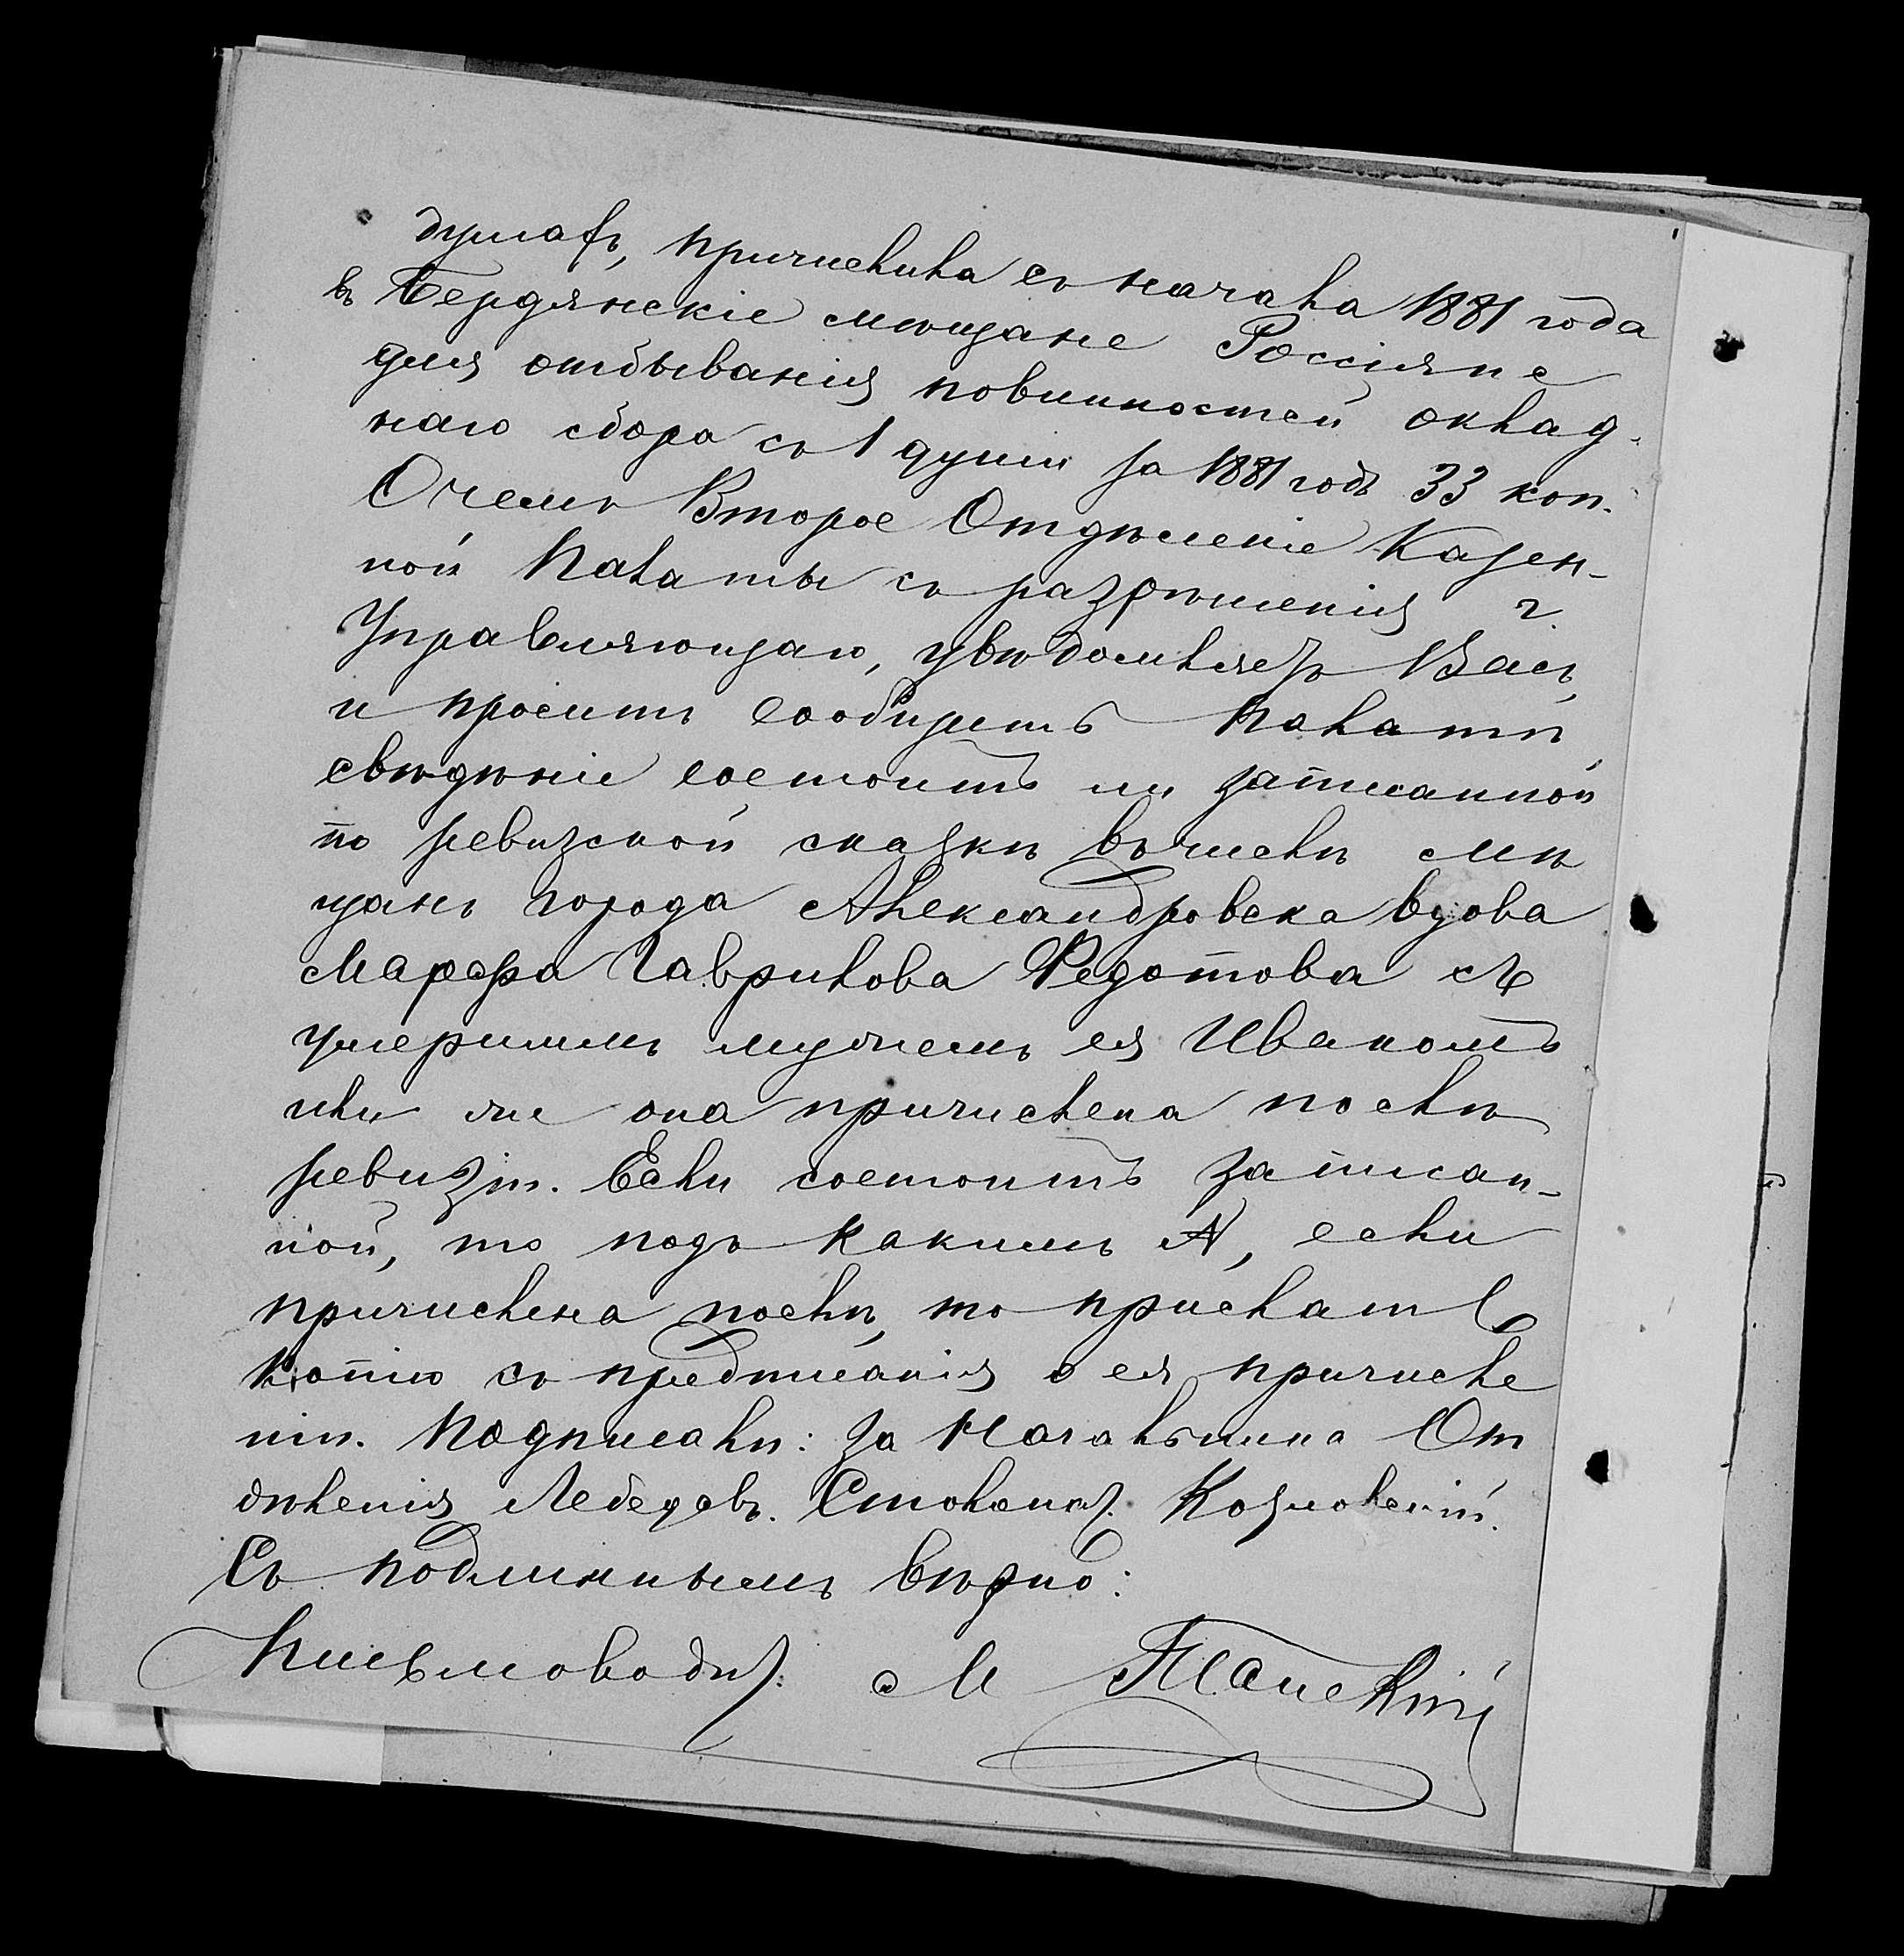 думахъ, причислила съ начала 1881 года
въ Бердянскіе мѣщане Россіяне
для отбыванія повинностей оклад-
наго сбора съ 1 души за 1881 годъ 33 коп.
О чемъ Второе Отдѣленіе Казен-
ной Палаты съ разрѣшенія г.
Управляющаго, увѣдомляетъ Васъ,
и проситъ сообщить Палатѣ
свѣдѣніе состоитъ ли записанной
по ревизской сказкѣ въ числѣ мѣ
щанъ города Александровска вдова
Марфа Гаврилова Федотова съ
умершимъ мужемъ ея Иваномъ
или же она причислена послѣ
ревизіи. Если состоитъ записан-
ной, то подъ какимъ №, если
причислена послѣ, то прислать
копію съ предписанія о ея причисле
ніи. Подписали: За Начальника От
дѣленія Лебедевъ. Столонач. Козловскій.
Съ подлиннымъ вѣрно:
Письмоводит: М